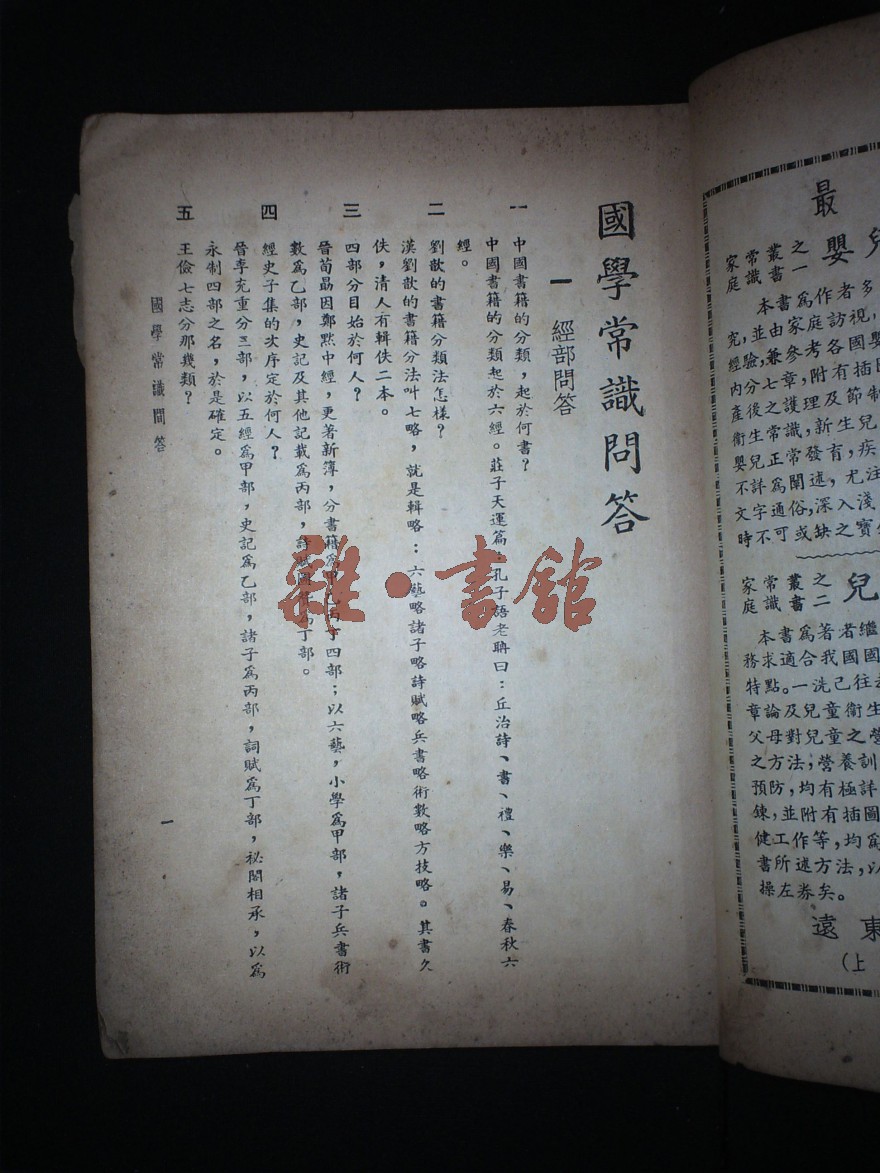 國學常識問答
一 經部問答
一 中國書籍的分類，起於何書？
中國書籍的分類起於六經。莊子天運篇：孔子語老聃曰：丘治詩、書、禮、樂、易、春秋六
經。
二 劉歆的書籍分類法怎樣？
漢劉歆的書籍分法叫七略，就是輯略：六藝略諸子略詩賦略兵書略術數略方技略。其書久
佚，清人有輯佚二本。
三 四部分目始於何人？
晉荀勗因鄭默中經，更著新簿，分書籍為甲乙丙丁四部；以六藝，小學為甲部，諸子兵書術
數為乙部，史記及其他記載為丙部，詩賦為丁部。
四 經史子集的次序定於何人？
晉李充重分三部，以五經為甲部，史記為乙部，諸子為丙部，詞賦為丁部，祕閣相承，以為
永制四部之名，於是確定。
五 王儉七志分那幾類？
國學常識問答
一
雜·書館
最
家庭常識叢書之一 嬰兒
本書為作者多
究，並由家庭訪視，
經驗，兼參考各國嬰
內分七章，附有插圖
產後之護理及節制
衛生常識，新生兒
嬰兒正常發育，疾
不詳為闡述，尤注
文字通俗，深入淺
時不可或缺之寶
家庭常識叢書之二 兒
本書為著者繼
務求適合我國國
特點。一洗已往
章論及兒童衛生
父母對兒童之營
之方法；營養訓
預防，均有極詳
鍊，並附有插圖
健工作等，均為
書所述方法，以
操左券矣。
遠東
（上